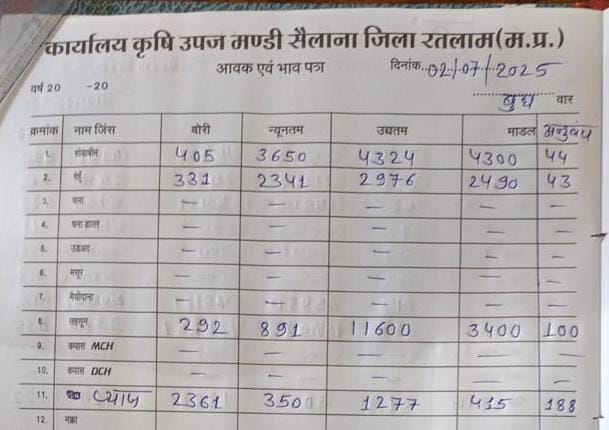 कार्यालय कृषि उपज मण्डी सैलाना जिला रतलाम (म.प्र.)
आवक एवं भाव पत्र दिनांक..02/07/2025
वर्ष 20 -20 बुध वार
क्रमांक नाम जिंस बोरी न्यूनतम उच्चतम माडल अनुबंध
1. सोयाबीन 405 3650 4324 4300 44
2. गेहूँ 331 2341 2976 2490 43
3. चना — — — — —
4. चना डालर — — — — —
5. उड़द — — — — —
6. मसूर — — — — —
7. मैथीदाना — — — — —
8. लहसून 292 891 11600 3400 100
9. कपास MCH — — — — —
10. कपास DCH — — — — —
11. प्याज 2361 350 1277 415 188
12. मक्का